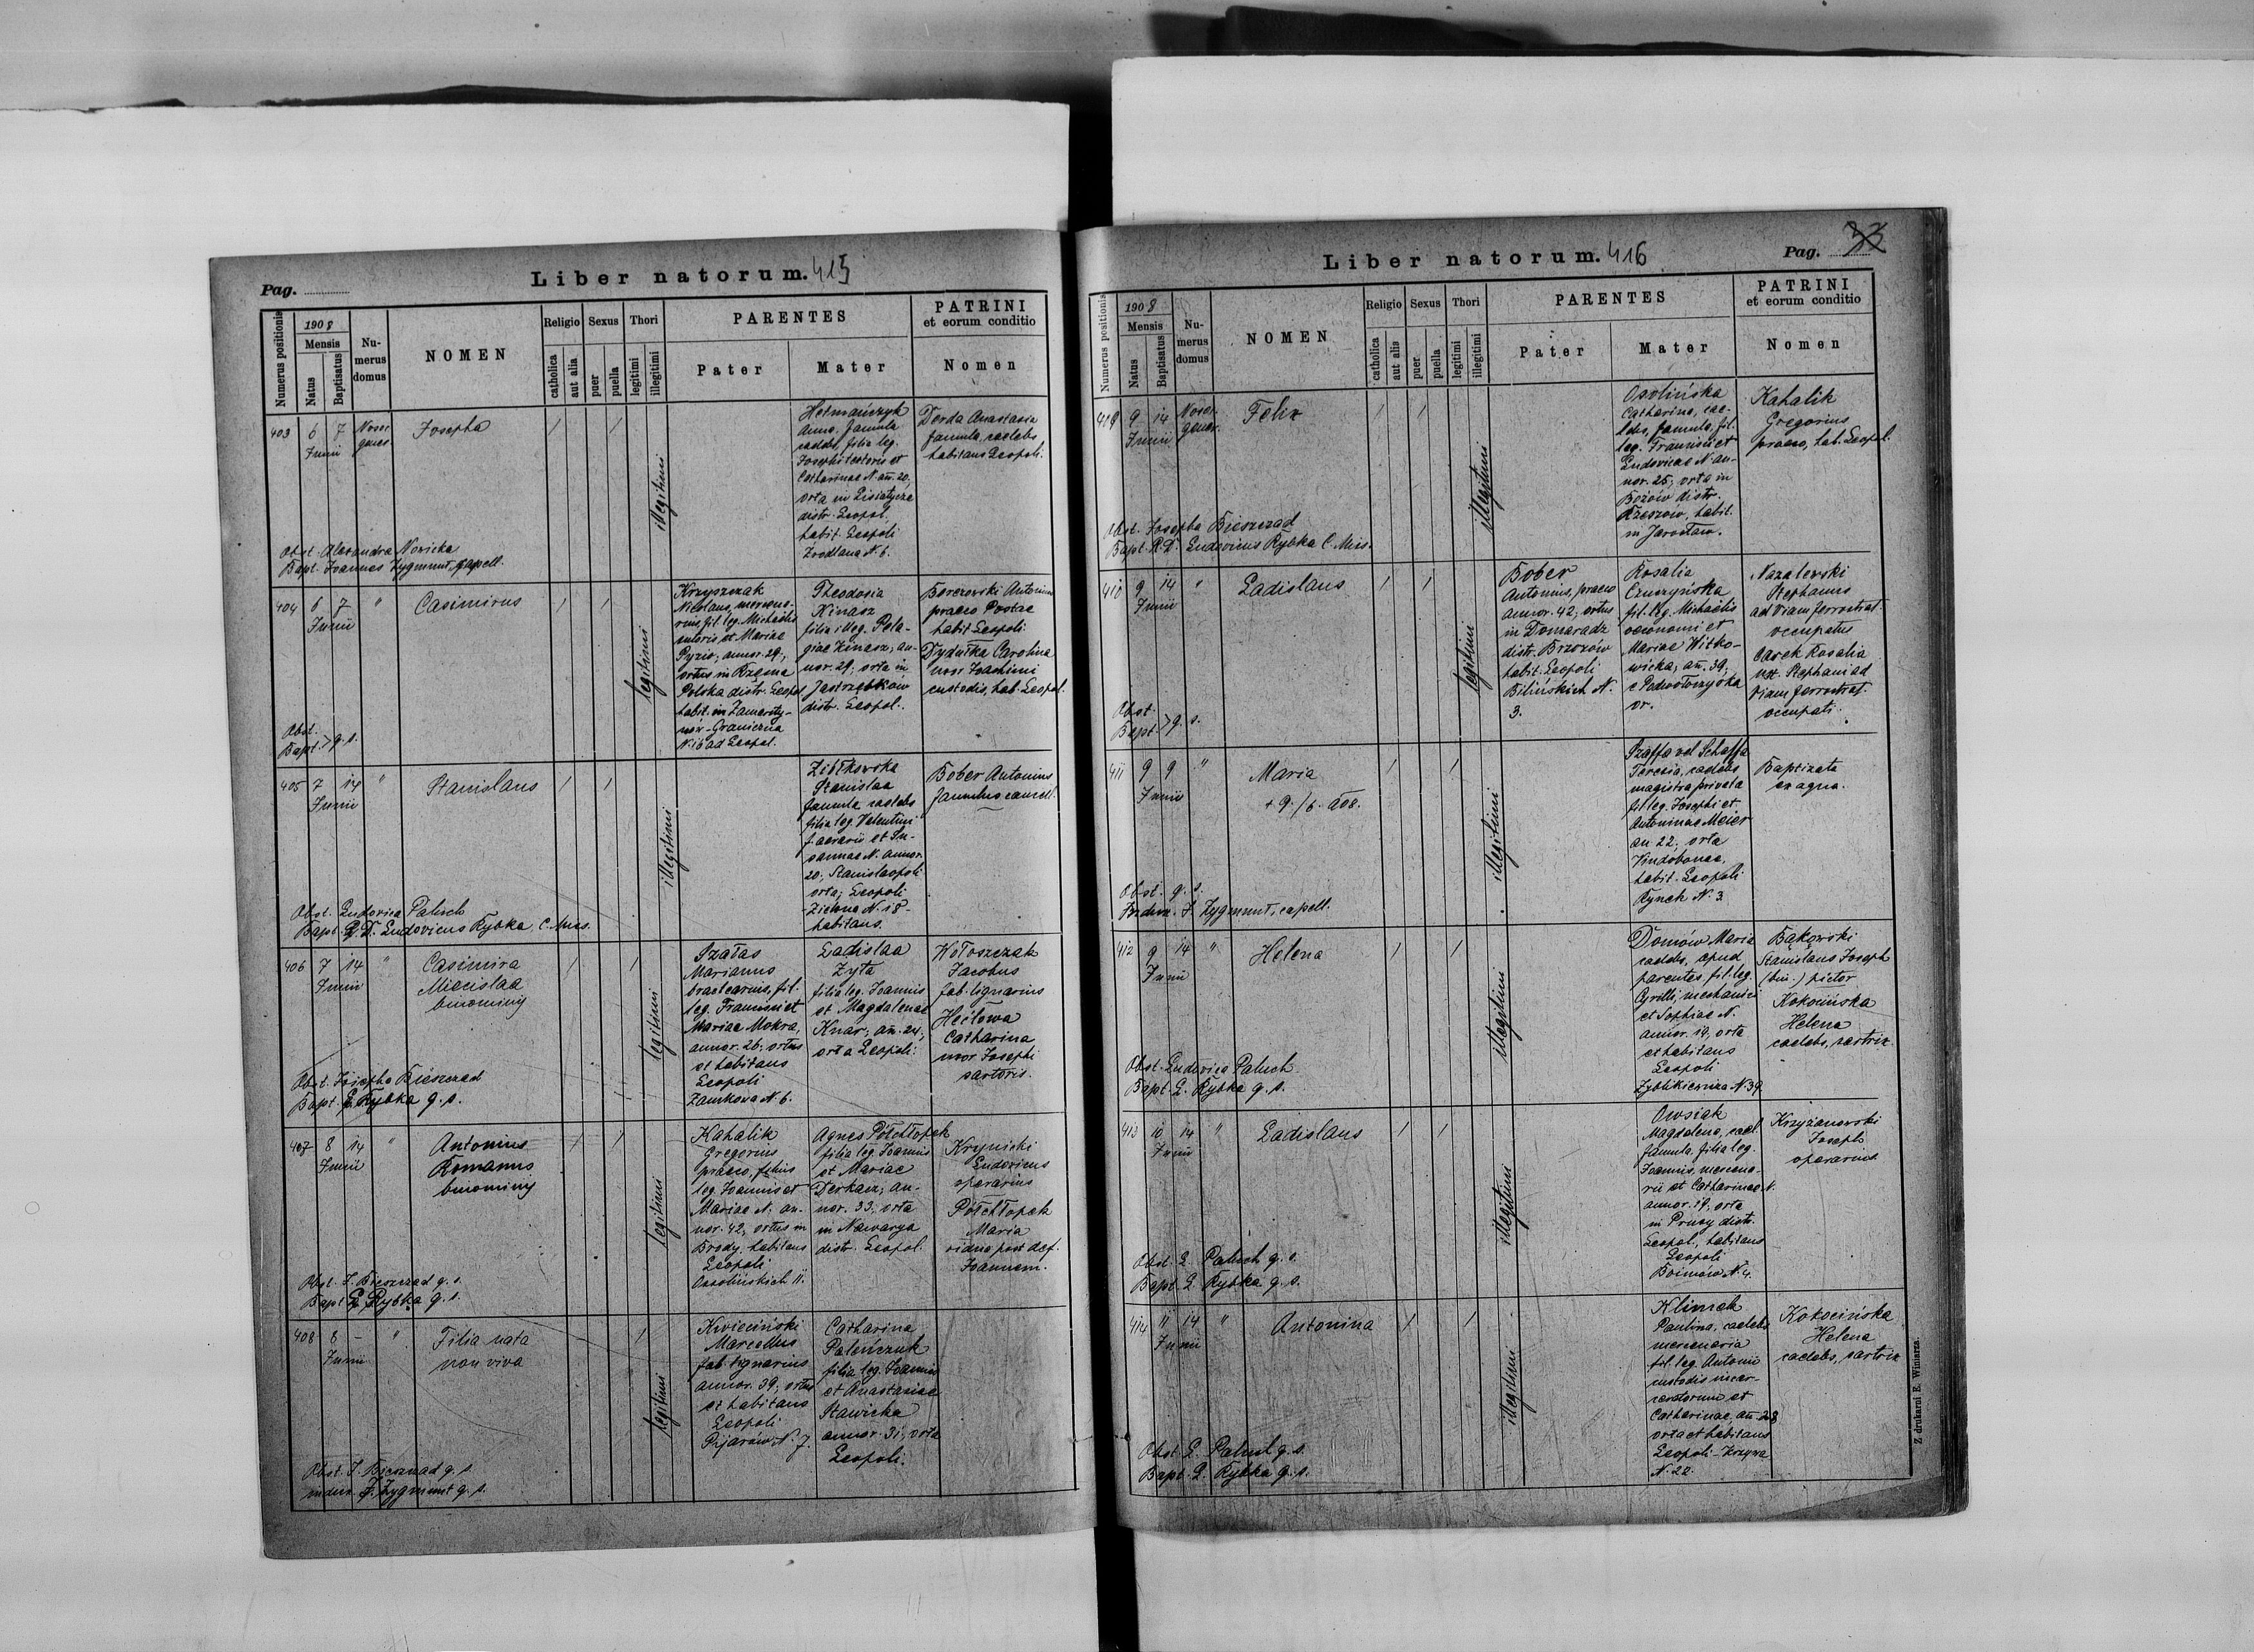 Pag.
Liber natorum. 415
Numerus positionis
1908
Mensis
Natus
Baptisatus
Numerus domus
NOMEN
Religio
catholica
aut alia
Sexus
puer
puella
Thori
legitimi
illegitimi
PARENTES
Pater
Mater
PATRINI
et eorum conditio
Nomen
403
6 7
Junii
Josepha
illegitimi
Hetmańczyk
Anna, famula
caelebs, filia leg.
Josephi textoris et
Catharinae N. an̄. 20,
orta in
distr. Leopol.
habit. Leopoli
N. 6.
Derda Anastasia
famula, caelebs
habitans Leopoli.
Obst. Alexandra Novicka
Bapt. Joannes Zygmunt, capell.
404
6 7
Junii
"
Casimirus
legitimi
Krzyszczak
Nicolaus, mercena-
rius, fil. leg. Michaëlis
sutoris et Mariae
annor. 29,
ortus in Rzęsna
Polska distr. Leopol.
habit. in Zamarsty-
nów - Graniczna
N. 16 ad Leopol.
Theodosia
Kinasz
filia illeg. Pela-
giae Kinasz, an-
nor. 29, orta in
Jastrzębków
distr. Leopol.
Borczowski Antonius
praeco Postae
habit. Leopoli
Dydulka Carolina
uxor Joachimi
custodis, hab. Leopol.
Obst.
Bapt. > q. s.
405
7 14
Junii
"
Stanislaus
illegitimi
Stanislaa
famula caelebs
filia leg. Valentini
f. aerarii et Su-
sannae N. annor.
20, Stanislaopoli
orta, Leopoli
Zielona N. 18
habitans.
Bober Antonius
famulus cancell.
Obst. Ludovica Paluch
Bapt. R. D. Ludovicus Rybka, C. Miss.
406
7 14
Junii
"
Casimira
Miecislaa
binominy
legitimi
Szałas
Marianus
bractearius, fil.
leg. Francisci et
Mariae Mokra,
annor. 26, ortus
et habitans
Leopoli
Zamkowa N. 6.
Ladislaa
Zyta
filia leg. Joannis
et Magdalenae
Knar, an̄. 24,
orta Leopoli.
Wołoszczak
Jacobus
fab. lignarius
Catharina
uxor Josephi
sartoris.
Obst. Josepha Bieszczad
Bapt. L. Rybka q. s.
407
8 14
Junii
"
Antonius
Romanus
binominy
legitimi
Kahalik
Gregorius
praeco, filius
leg. Joannis et
Mariae N. an-
nor. 42, ortus in
Brody, habitans
Leopoli
Ossolińskich 11.
Agnes Półchłopek
filia leg. Joannis
et Mariae
Derkacz, an-
nor. 33, orta
in Nawarya
distr. Leopol.
Kryniski
Ludovicus
operarius
Półchłopek
Maria
vidua post def.
Joannem.
Obst. J. Bieszczad q. s.
Bapt. L. Rybka q. s.
408
8 -
Junii
"
Filia nata
non viva
legitimi
Kwieciński
Marcellus
fab. lignarius
annor. 39, ortus
et habitans
Leopoli
Pijarów N. 7.
Catharina
Paleńczuk
filia leg. Joannis
et Anastasiae
Stawicka
annor. 31, orta
Leopoli.
Obst. J. Bieszczad q. s.
J. Zygmunt q. s.
Liber natorum. 416
Pag. 33
Numerus positionis
1908
Mensis
Natus
Baptisatus
Numerus domus
NOMEN
Religio
catholica
aut alia
Sexus
puer
puella
Thori
legitimi
illegitimi
PARENTES
Pater
Mater
PATRINI
et eorum conditio
Nomen
419
9 14
Junii
Felix
illegitimi
Osolińska
Catharina, cae-
lebs, famula, fil.
leg. Francisci et
Ludovicae N. an-
nor. 25, orta in
distr.
Rzeszów, habit.
in Jarosław.
Kahalik
Gregorius
praeco, hab. Leopol.
Obst. Josepha Bieszczad
Bapt. R. D. Ludovicus Rybka C. Miss.
410
9 14
Junii
"
Ladislaus
legitimi
Bober
Antonius, praeco
annor. 42, ortus
in Domaradz
distr. Brzozów
habit. Leopoli
Bilińskich N.
3.
Rosalia
Czuczyńska
fil. leg. Michaëlis
oeconomi et
Mariae Witko-
wicka, an̄. 39,
e Podwołoczyska
or.
Nazalevski
Stephanus
ad viam ferrostrat.
occupatus
Rosalia
ux. Stephani ad
viam ferrostrat.
occupati.
Obst.
Bapt. > q. s.
411
9 9
Junii
"
Maria
+ 9./6. a08.
illegitimi
Szaffa vel Schaffa
Teresia, caelebs
magistra privata
fil. leg. Josephi et
Antoninae Meier
an. 22, orta
Vindobonae,
habit. Leopoli
Rynek N. 3.
Baptizata
ex aqua.
Obst. q. s.
J. Zygmunt, capell.
412
9 14
Junii
"
Helena
illegitimi
Domów Maria
caelebs, apud
parentes, fil. leg.
Cyrilli, mechanici
et Sophiae N.
annor. 19, orta
et habitans
Leopoli
Zyblikiewicza N. 39
Bąkowski
Stanislaus Joseph
(bin.) pictor
Kokocińska
Helena
caelebs, sartrix
Obst. Ludovica Paluch
Bapt. L. Rybka q. s.
413
10 14
Junii
"
Ladislaus
illegitimi
Owsiak
Magdalena, cael.
famula, filia leg.
Joannis, mercena-
rii et Catharinae N.
annor. 19, orta
in Prusy distr.
Leopol., habitans
Leopoli
Boimów N. 4.
Krzyżanowski
Joseph
operarius
Obst. L. Paluch q. s.
Bapt. L. Rybka q. s.
414
11 14
Junii
"
Antonina
illegitimi
Klimek
Paulina, caelebs
mercenaria
fil. leg. Antonii
custodis incar-
ceratorum et
Catharinae, an̄. 28
orta et habitans
Leopoli - Krzywa
N. 22.
Kokocińska
Helena
caelebs, sartrix
Obst. L. Paluch q. s.
Bapt. L. Rybka q. s.
Z drukarni E. Winiarza.